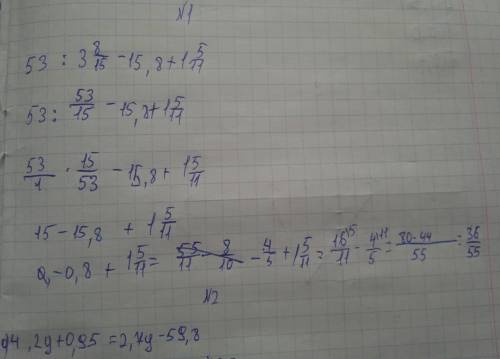 №1
53 : 3 8/15 - 15,8 + 1 5/11
53 : 53/15 - 15,8 + 1 5/11
53/1 · 15/53 - 15,8 + 1 5/11
15 - 15,8 + 1 5/11
-0,8 + 1 5/11 = - 4/5 + 1 5/11 = 16/11 - 4/5 = 80-44/55 = 36/55
№2
,2y + 0,95 = 2,7y - 59,8